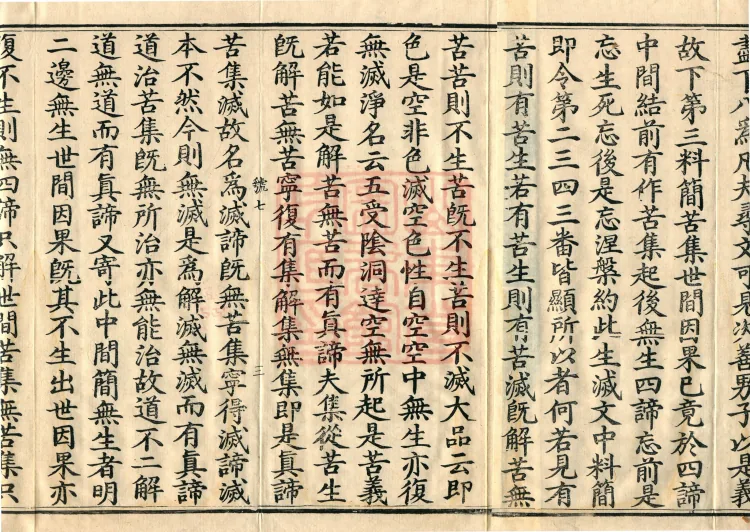 盡下八爲凡夫尋文可果次善男子以是義
故下第三料簡苦集世間因果已竟於四諦
中間結前有作苦集起後無生四諦忘前是
忘生死忘後是忘涅槃約此生滅文中料簡
即令第二三四三番皆顯所以者何若見有
苦則有苦生若有苦生則有苦滅旣解苦無
苦苦則不生苦旣不生苦則不滅大品云即
色是空非色滅空色性自空空中無生亦復
無滅淨名云五受陰洞達空無所起是苦義
若能如是解苦無苦而有眞諦夫集從苦生
旣解苦無苦寧復有集解集無集即是眞諦
號七
三
苦集滅故名爲滅諦旣無苦集寧得滅諦滅
本不然今則無滅是爲解滅無滅而有眞諦
道治苦集旣無所治亦無能治故道不二解
道無道而有眞諦又寄此中間簡無生者明
二邊無生世間因果旣其不生出世因果亦
復不生則無四諦只解世間苦集無苦集只